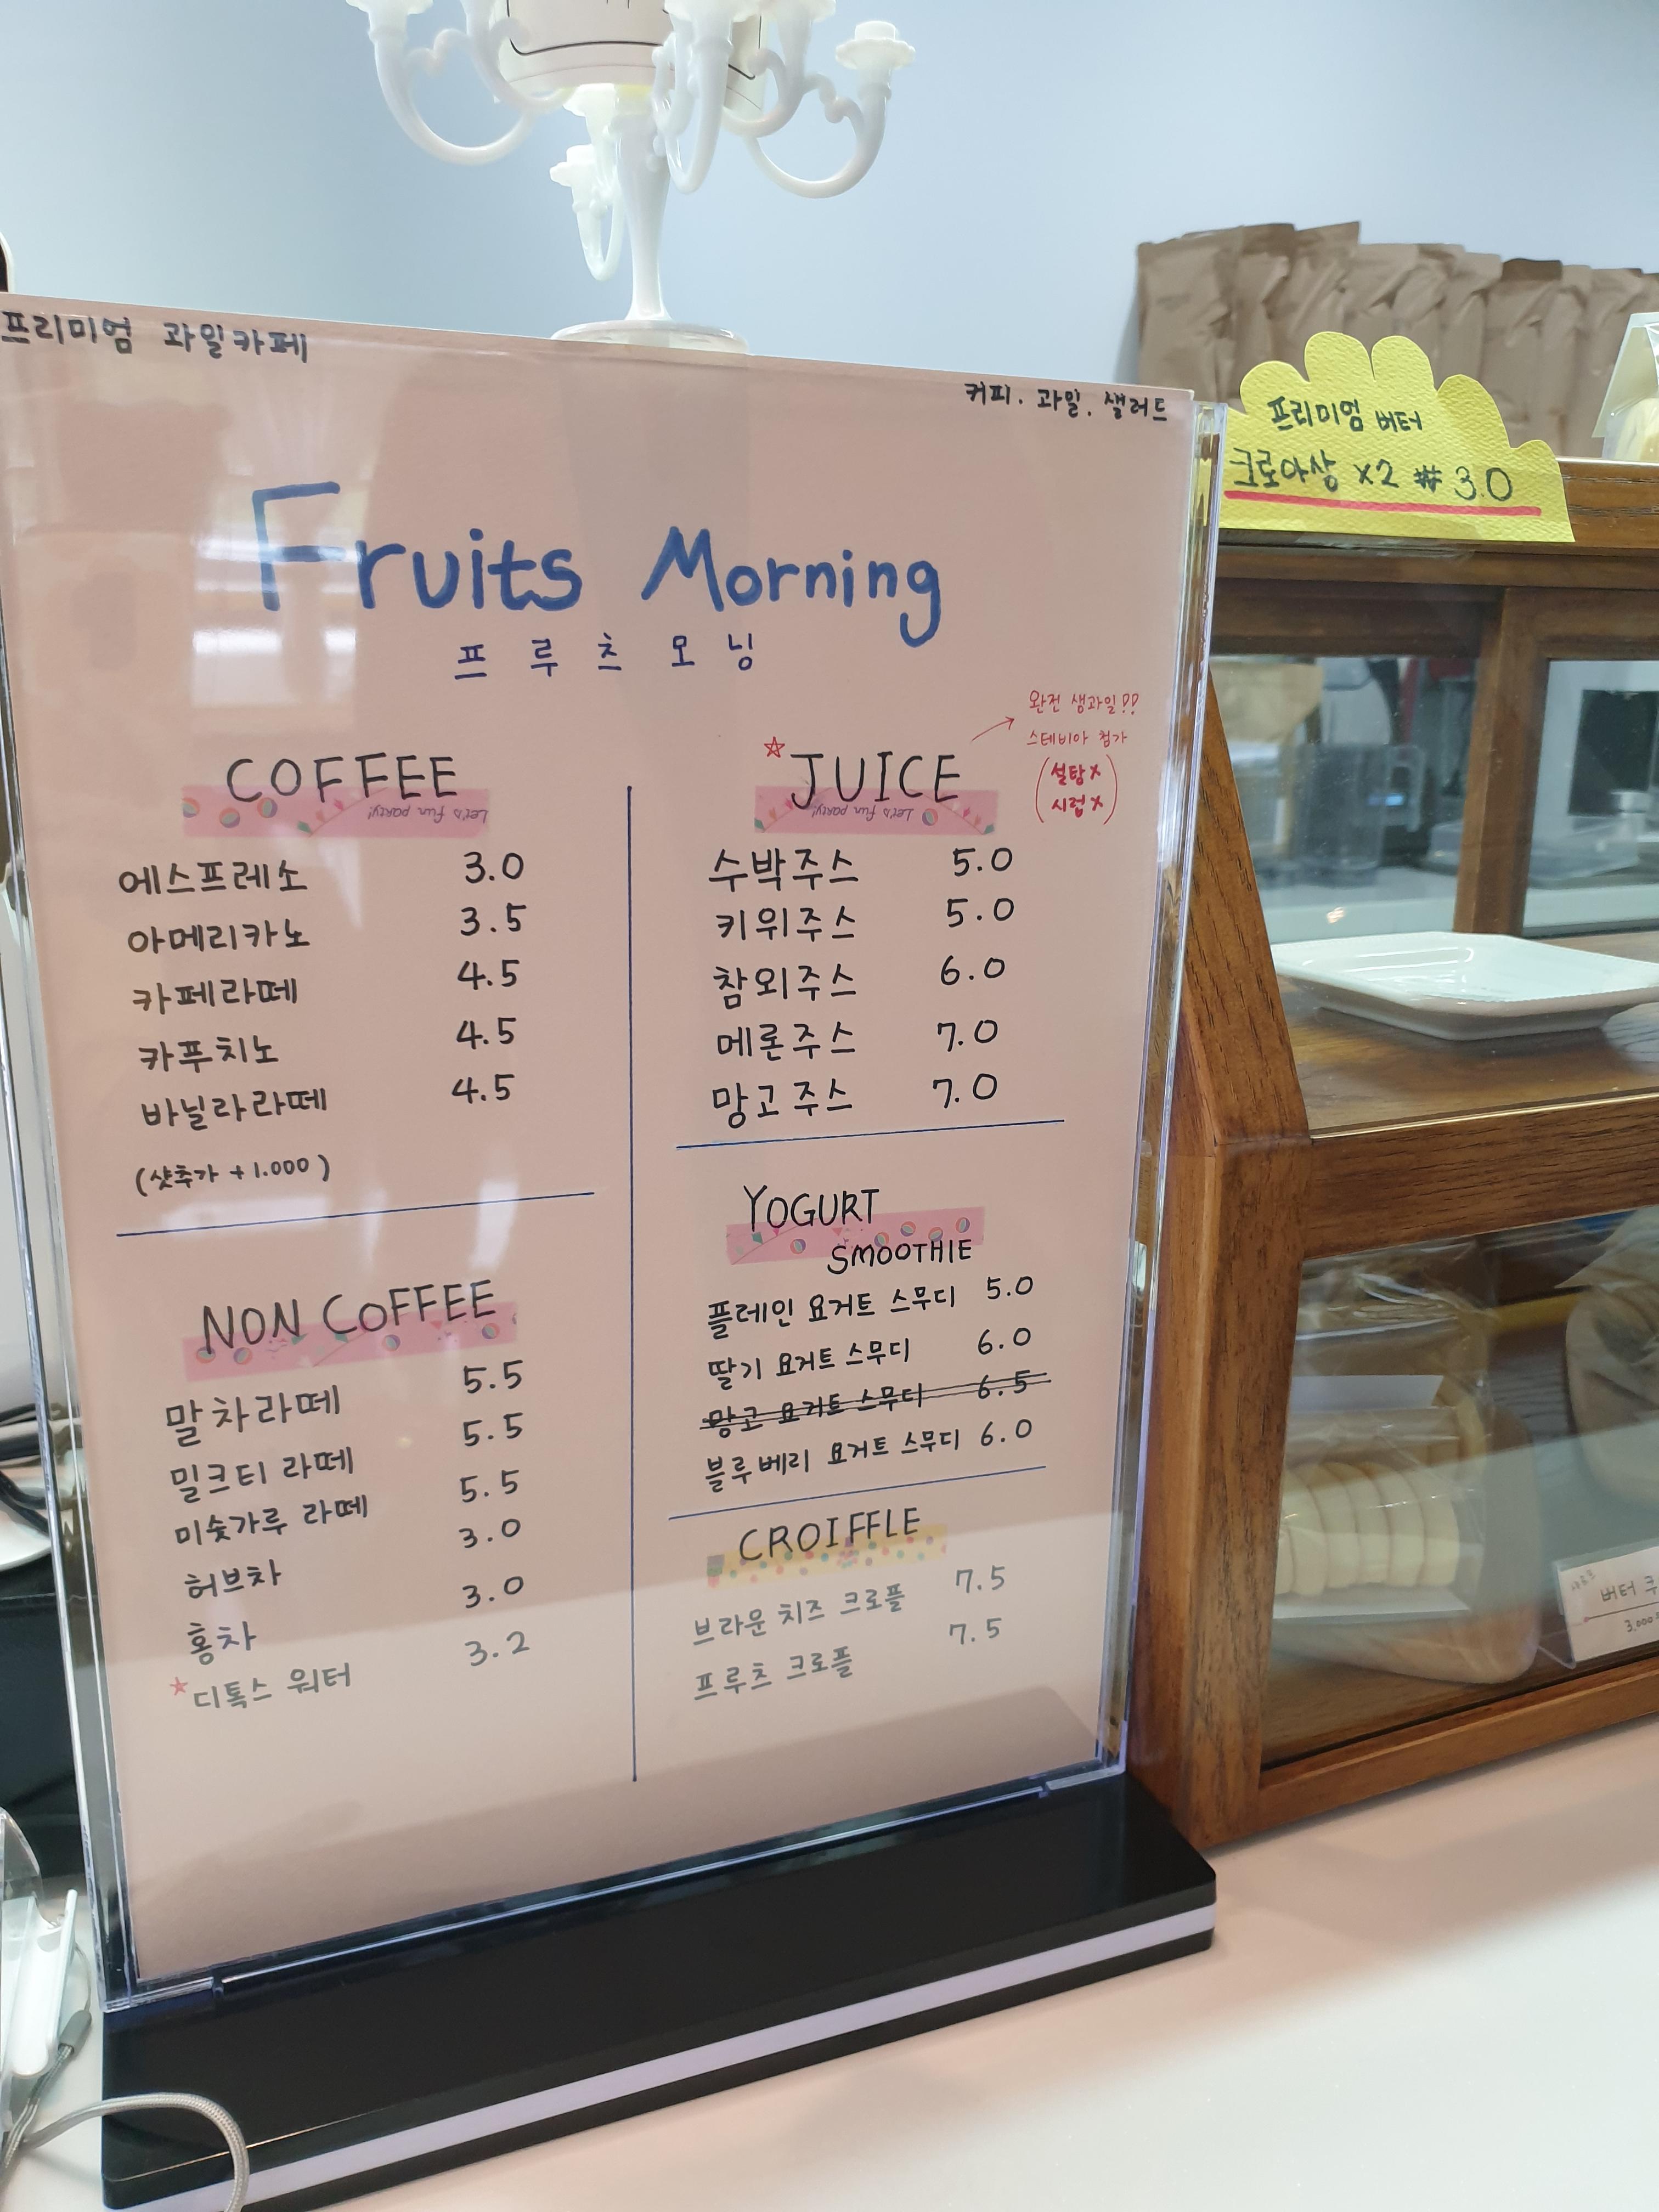 프리미엄 과일카페
커피. 과일. 샐러드
Fruits Morning
프루츠모닝
COFFEE
Let's fun party!
에스프레소 3.0
아메리카노 3.5
카페라떼 4.5
카푸치노 4.5
바닐라라떼 4.5
(샷추가 +1.000)
NON COFFEE
말차라떼 5.5
밀크티 라떼 5.5
미숫가루 라떼 5.5
허브차 3.0
홍차 3.0
☆디톡스 워터 3.2
☆JUICE
Let's fun party!
완전 생과일!!
스테비아 첨가
(설탕X
시럽X)
수박주스 5.0
키위주스 5.0
참외주스 6.0
메론주스 7.0
망고주스 7.0
YOGURT
SMOOTHIE
플레인 요거트 스무디 5.0
딸기 요거트 스무디 6.0
망고 요거트 스무디 6.5
블루베리 요거트 스무디 6.0
CROIFFLE
브라운 치즈 크로플 7.5
프루츠 크로플 7.5
프리미엄 버터
크로아상 x2 # 3.0
버터
3,000